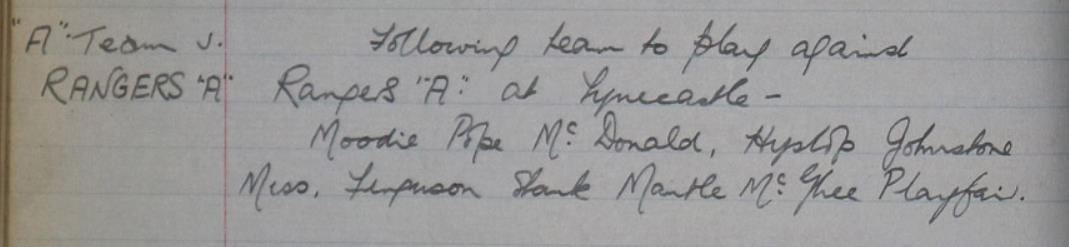 "A" Team v. Following team to play against
RANGERS "A" Rangers "A" at Tynecastle -
Moodie Pope Mc Donald, Hyslop Johnstone
Miss, Ferguson Shank Mantle Mc Ghee Playfair.